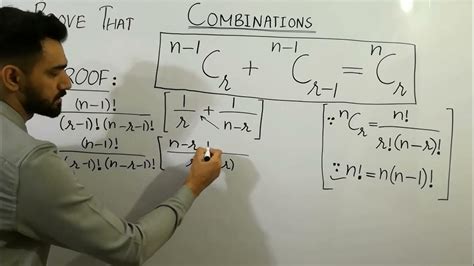 PROVE THAT
COMBINATIONS
ⁿ⁻¹Cᵣ + ⁿ⁻¹Cᵣ₋₁ = ⁿCᵣ
PROOF:
(n-1)! / (r-1)!(n-r-1)! [1/r + 1/(n-r)]
(n-1)! / (r-1)!(n-r-1)! [n-r
∵ ⁿCᵣ = n! / r!(n-r)!
∵ n! = n(n-1)!